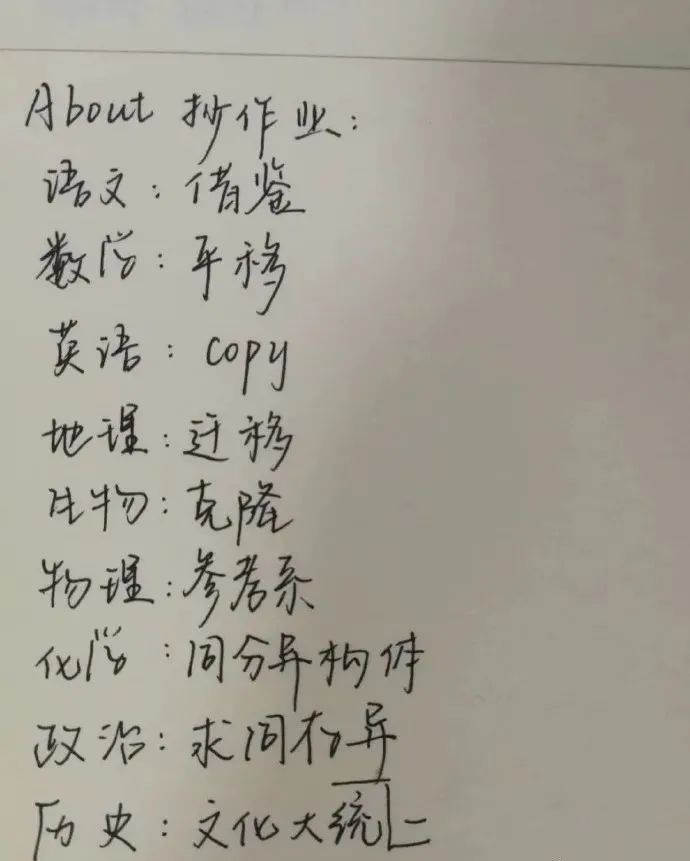 About 抄作业:
语文: 借鉴
数学: 平移
英语: copy
地理: 迁移
生物: 克隆
物理: 参考系
化学: 同分异构体
政治: 求同存异
历史: 文化大统一